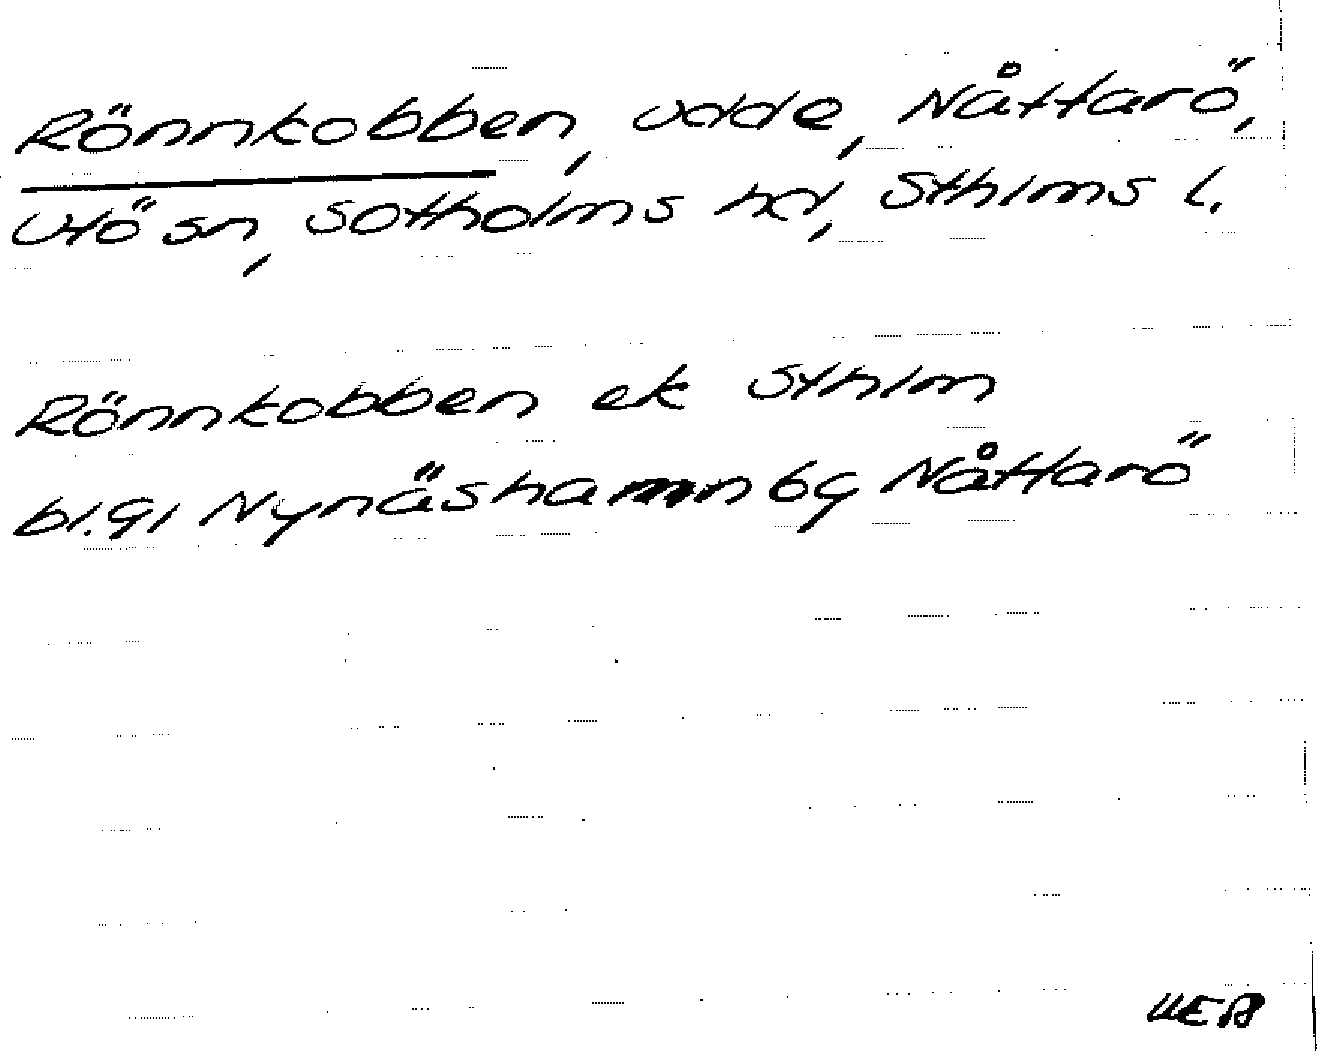 Rönnkobben, udde, Nåttarö,
Utö sn, Sotholms hd, Sthlms l.
Rönnkobben ek Sthlm
bl.91 Nynäshamn bg Nåttarö